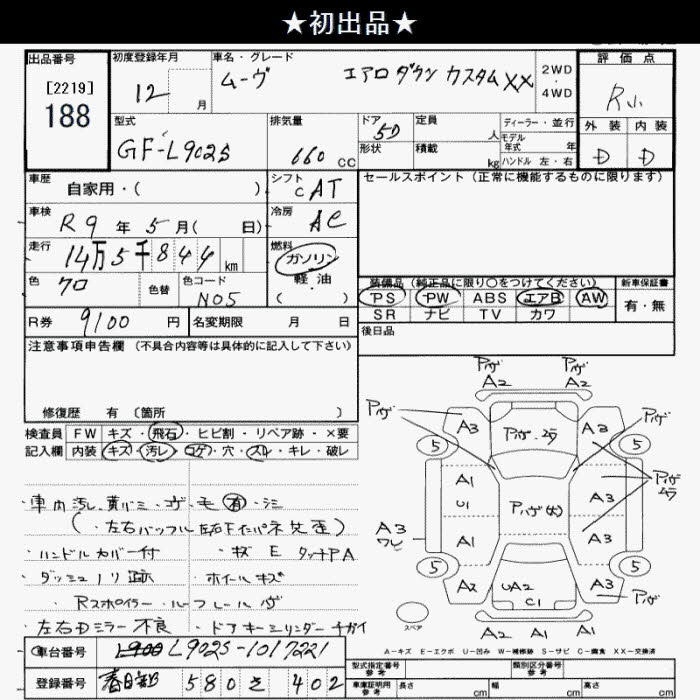 ★初出品★
出品番号
[2219]
188
初度登録年月
12 月
車名・グレード
ムーヴ エアロダウンカスタムXX
2WD
・
4WD
評価点
R小
外装 内装
D D
型式
GF-L902S
排気量
660 CC
ドア
5D
形状
定員
人
積載
kg
ディーラー・並行
モデル年式 年
ハンドル 左・右
車歴
自家用・( )
シフト
CAT
車検
R9年5月( 日)
冷房
AC
走行
14万5千844 km
燃料
ガソリン
軽・油
( )
色
クロ
色替
色コード
N05
R券
9100円
名変期限 月 日
セールスポイント(正常に機能するものに限ります)
装備品(純正品に限り○をつけてください)
PS PW ABS エアB AW
SR ナビ TV カワ
新車保証書
有・無
後日品
注意事項申告欄(不具合内容等は具体的に記入して下さい)
修復歴 有(箇所 )
検査員記入欄
FW キズ・飛石・ヒビ割・リペア跡・×要
内装 キズ・汚レ・コゲ・穴・スレ・キレ・破レ
・ハンドルカバー付
・キズE タッチPA
・ダッシュノリ跡
・ホイールキズ
・Rスポイラー・ルーフレールハゲ
・左右Dミラー不良
・ドアキーシリンダーチガイ
車台番号
L902S-1017221
登録番号
春日部 580 さ 402
Pハゲ Pハゲ
A2 A2
Pハゲ Pハゲ
A3 A3
5 5
A1 A3
U1
A1 A3
A3
ワレ
5 5
A2 A3
UA2
C1
Pハゲ
A2 A1 A1
スペア
A-キズ E-エクボ U-凹み W-補修跡 S-サビ C-腐食 XX-交換済
型式指定番号
参考
類別区分番号
参考
車庫証明用
参考
長さ cm
幅 cm
高さ cm